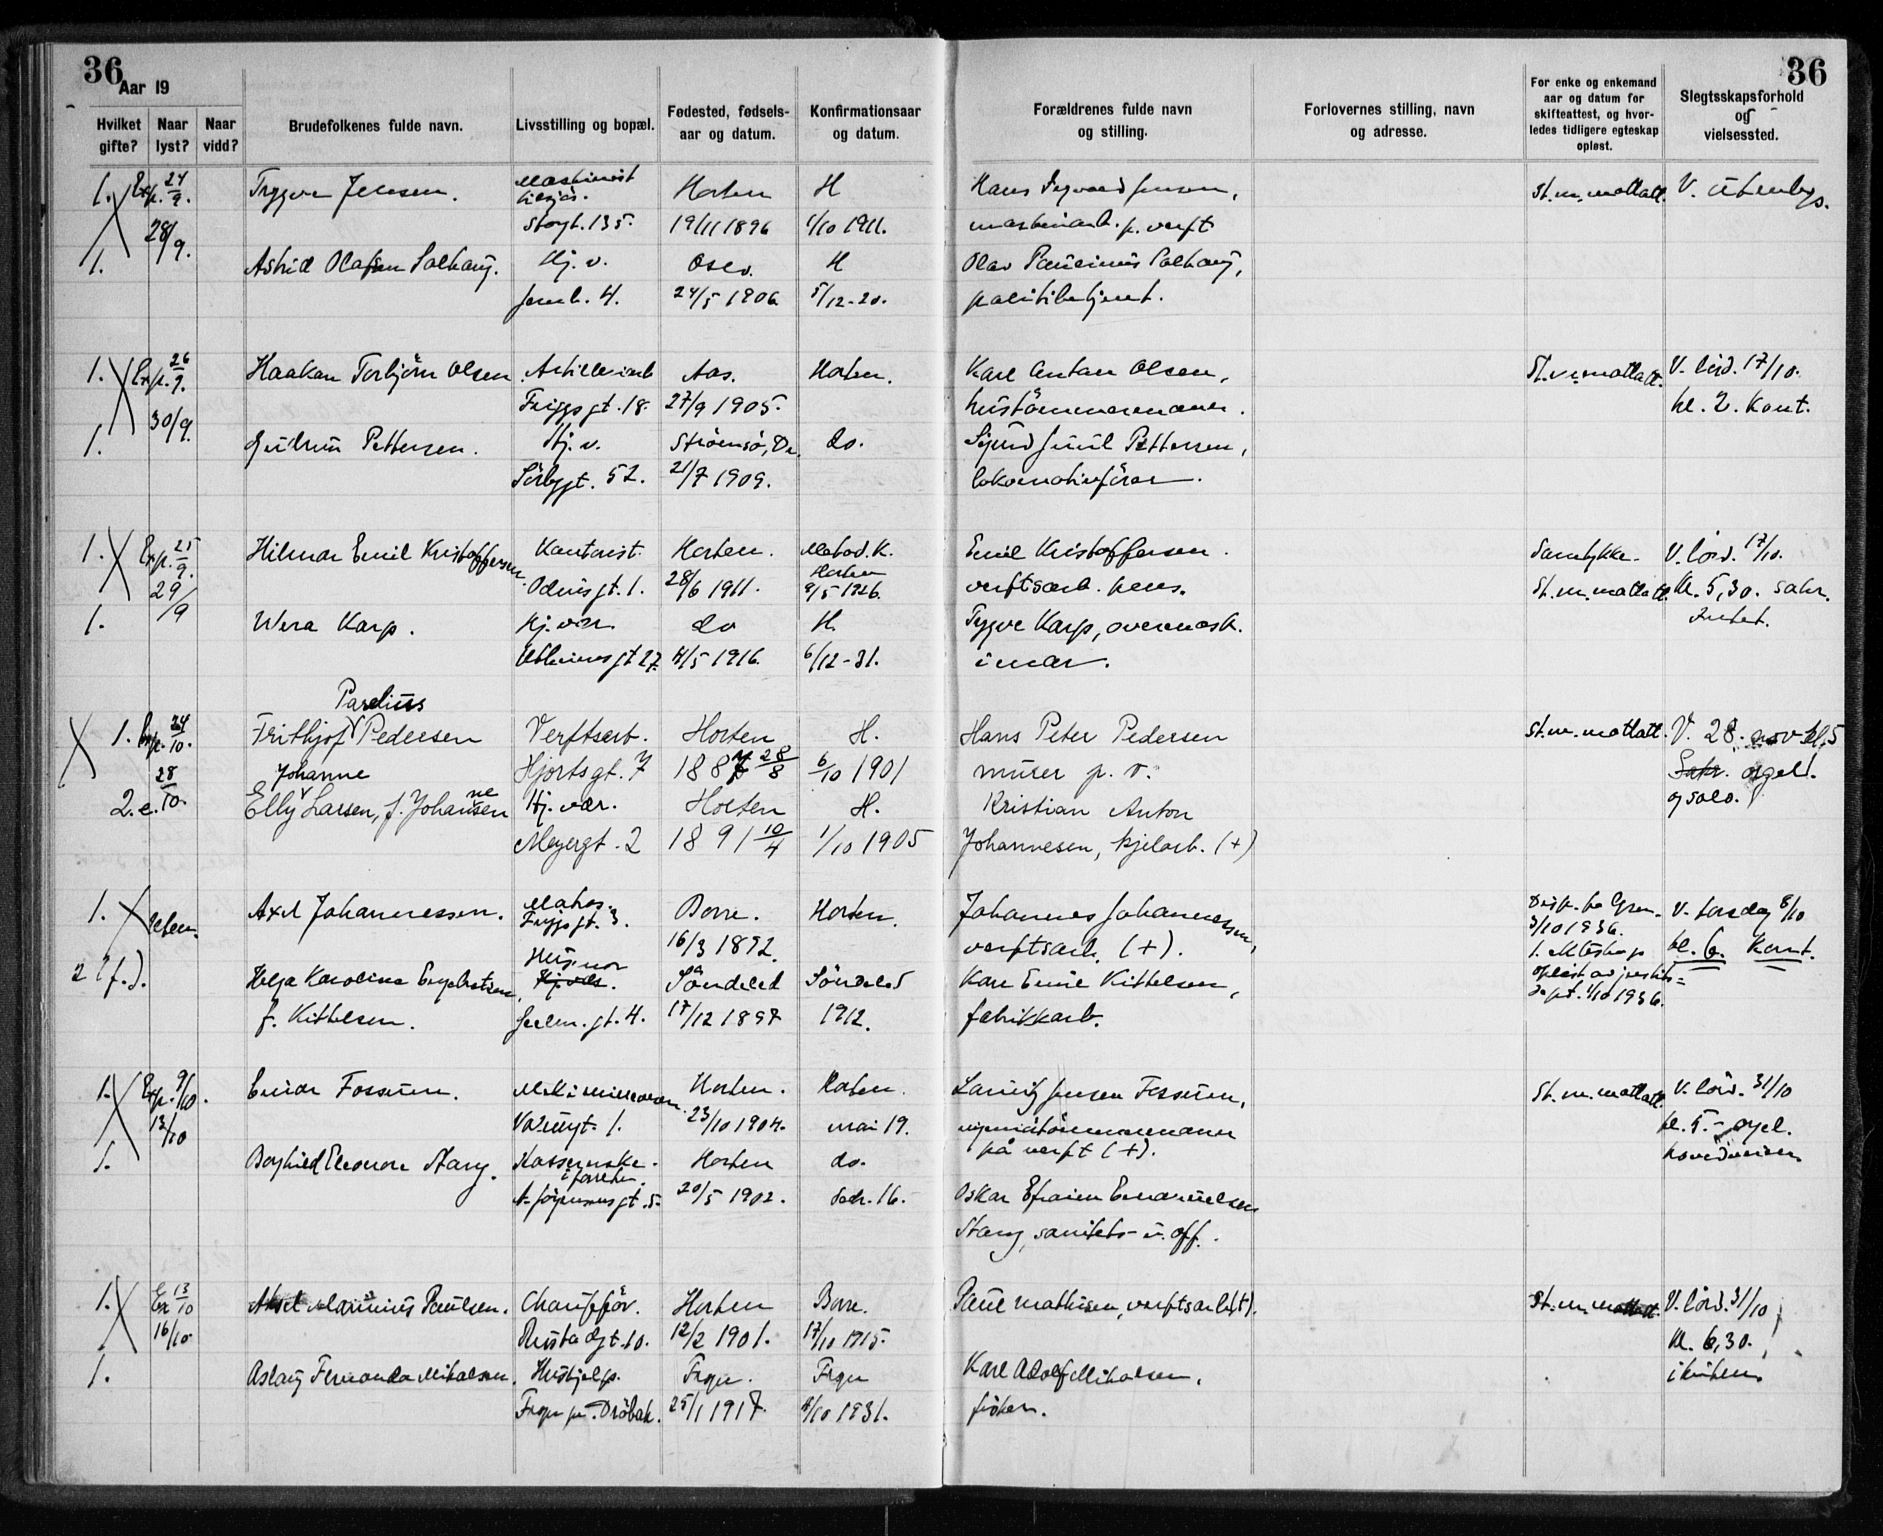 36
36
Aar 19
Hvilket gifte?
Naar lyst?
Naar vidd?
Brudefolkenes fulde navn.
Livsstilling og bopæl.
Fødested, fødsels-
aar og datum.
Konfirmationsaar
og datum.
Forældrenes fulde navn
og stilling.
Forlovernes stilling, navn
og adresse.
For enke og enkemand
aar og datum for
skifteattest, og hvor-
ledes tidligere egteskap
opløst.
Slegtsskapsforhold
og
vielsessted.
1. Exp. 24/9. Trygve Jensen. Maskinist Horten H Hans Jensen, St. m. mottatt. V. utenbys.
28/9. Storgt. 135. 19/11 1896 1/10 1911. p. verft
1. Astrid Olafsen Solhaug. Hj. v. Oslo. H Olav Solhaug,
Jernb. 4. 24/5 1906. 5/12-20. politibetjent.
1. Exp. 26/9. Haakon Torbjörn Olsen. Horten. Karl Anton Olsen, St. m. mottatt. V. lörd. 17/10.
30/9. Friggsgt. 18. 27/9 1905. hustömmermann. kl. 2. Kont.
1. Gudrun Pettersen. Hj. v. Strömsö, Dr. do. Sigurd Juul Pettersen,
Sörbygt. 52. 21/7 1909. lokomotivförer.
1. Exp. 25/9. Hilmar Emil Kristoffersen. Kontorist. Horten. Metod. K. Emil Kristoffersen. Samtykke. V. lörd. 17/10.
29/9 Odinsgt. 1. 28/6 1911. Horten 9/5 1926. verftsarb. pens. St. m. mottatt. kl. 5,30. Sakr.
1. Wera Karp. Hj. vær. do H. Tygve Karp, overmask.
27. 4/5 1916. 6/12-31. i mar.
Parelius
1. Exp. 24/10. Frithjof Pedersen Verftsarb. Horten H. Hans Peter Pedersen St. m. mottatt. V. 28. nov kl. 5
28/10. Johanne Hjortsgt. 7 1887 28/8 6/10 1901 murer p. v. Sakr. orgel.
2. e. Elly Larsen, f. Johannesen Hj. vær. Horten H. Kristian Anton og solo.
Meyergt. 2 1891 10/4 1/10 1905 Johannesen, kjelarb. (+)
1. uten. Axel Johannessen. Matros. Borre. Horten. Johannes Johannessen, V. torsdag 8/10
Friggsgt. 3. 16/3 1892. verftsarb. (+). 3/10 1936. kl. 6. Kont.
2 (f.). Helga Karoline Engebretsen, Husmor Hj. vær. Söndeled Söndeled Karl Emil Kittelsen, 1. ekteskap
f. Kittelsen. gt. 4. 17/12 1897 1912. fabrikkarb. oplöst av justits=
dept. 1/10 1936.
1. Exp. 9/10. Einar Fossum. Horten. Horten. Jensen Fossum, St. m. mottatt. V. lörd. 31/10
13/10 1. 23/10 1904. mai 19. kl. 5. - orgel.
på verft (+).
1. Borghild Eleonore Stang. Horten do. Oskar Efraim Emanuelsen
gt. 5. 20/5 1902. 16. Stang, sanitets- u. off.
1. 13/10 Aksel Marinius Paulsen. Chaufför. Horten Borre. Paul Mathisen, verftsarb. St. m. mottatt. V. lörd. 31/10
16/10. Rustadgt. 10. 12/2 1901. 17/10 1915. kl. 6,30.
1. Aslaug Fernanda Mikalsen. Hushjelp. Frogn. Frogn Karl Adolf Mikalsen, i kirken
Frogn pr. Dröbak. 25/1 1917. 4/10 1931. fisker.